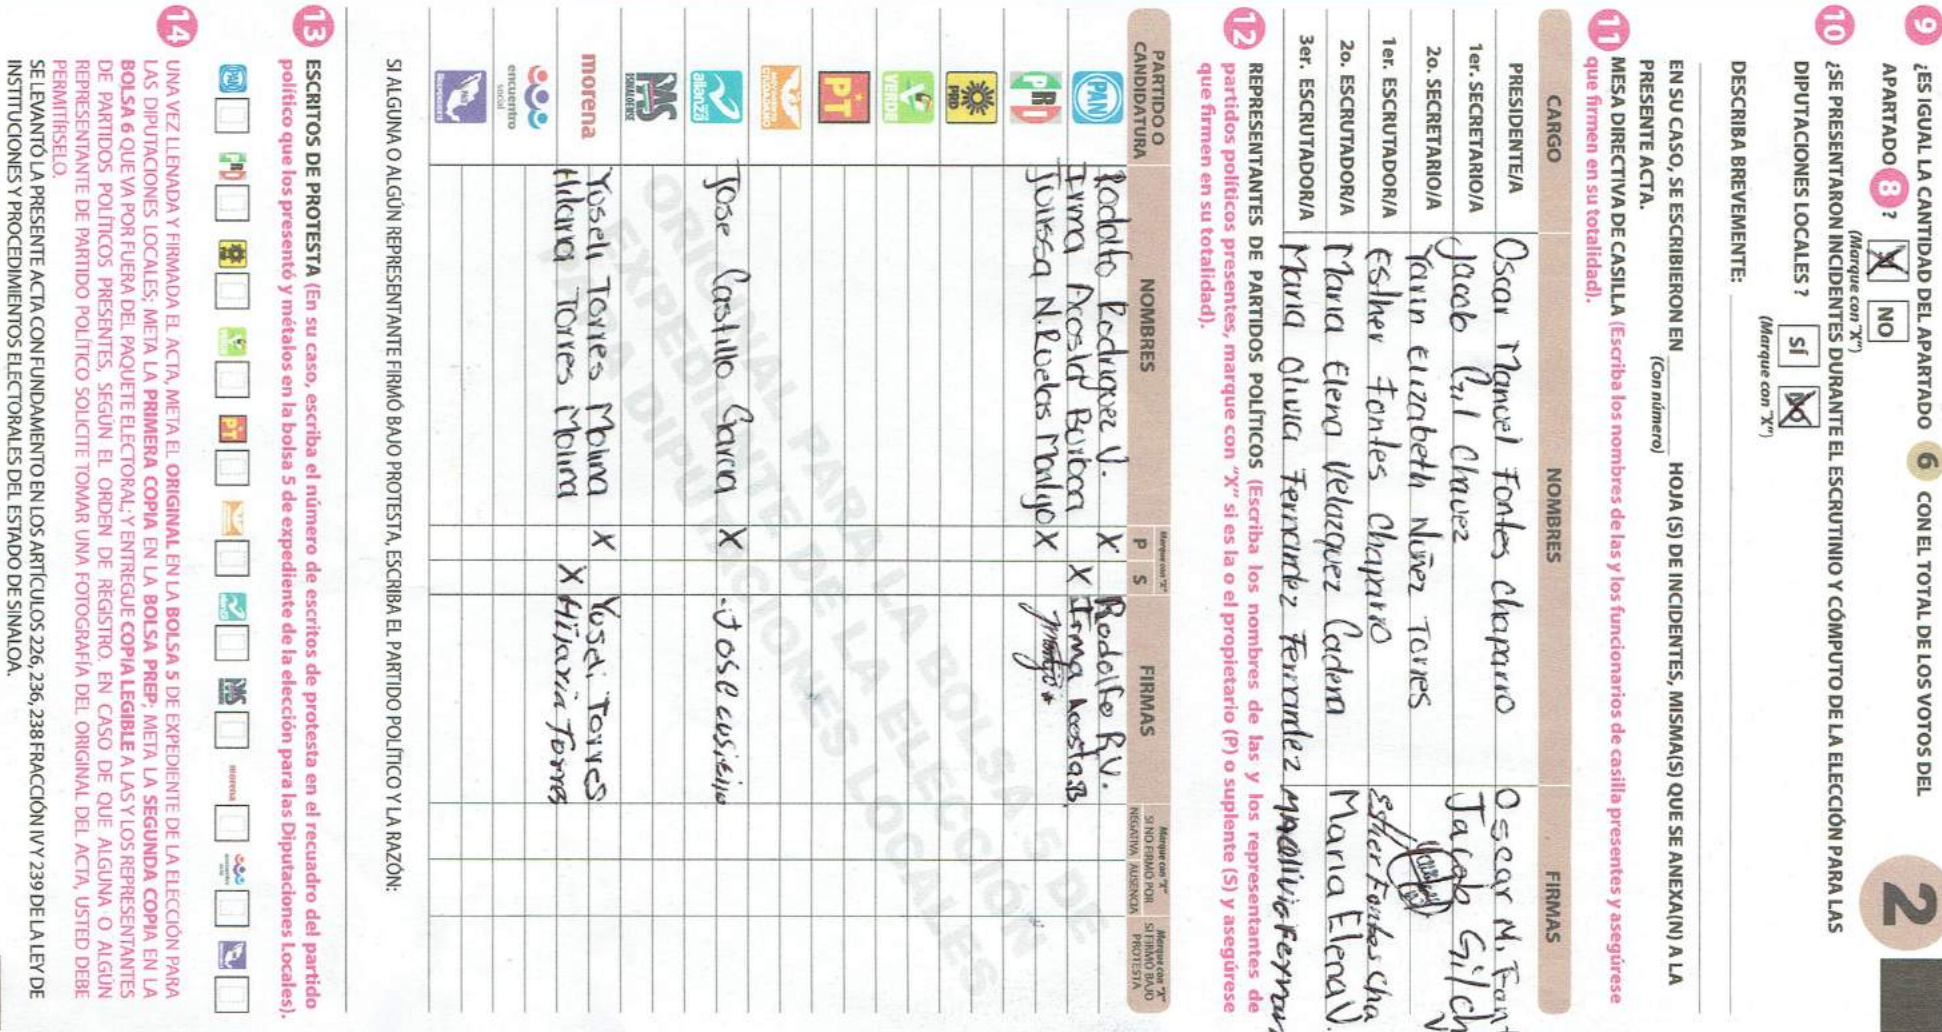 9 ¿ES IGUAL LA CANTIDAD DEL APARTADO 6 CON EL TOTAL DE LOS VOTOS DEL
APARTADO 8 ? X NO
(Marque con "X")
2
10 ¿SE PRESENTARON INCIDENTES DURANTE EL ESCRUTINIO Y CÓMPUTO DE LA ELECCIÓN PARA LAS
DIPUTACIONES LOCALES ? SÍ NO
(Marque con "X")
DESCRIBA BREVEMENTE:
EN SU CASO, SE ESCRIBIERON EN HOJA (S) DE INCIDENTES, MISMA(S) QUE SE ANEXA(N) A LA
(Con número)
PRESENTE ACTA.
11 MESA DIRECTIVA DE CASILLA (Escriba los nombres de las y los funcionarios de casilla presentes y asegúrese
que firmen en su totalidad).
CARGO NOMBRES FIRMAS
PRESIDENTE/A Oscar Manuel Fontes Chaparro Oscar M. Font
1er. SECRETARIO/A Jacob Gil Chavez Jacob Gil ch
2o. SECRETARIO/A Yarin Elizabeth Nuñez Torres
1er. ESCRUTADOR/A Esther Fontes Chaparro Esther Fontes Cha
2o. ESCRUTADOR/A Maria Elena Velazquez Cadena Maria Elena V.
3er. ESCRUTADOR/A Maria Olivia Fernandez Fernandez
12 REPRESENTANTES DE PARTIDOS POLÍTICOS (Escriba los nombres de las y los representantes de
partidos políticos presentes, marque con "X" si es la o el propietario (P) o suplente (S) y asegúrese
que firmen en su totalidad).
PARTIDO O CANDIDATURA NOMBRES Marque con "X" P S FIRMAS Marque con "X" SI NO FIRMÓ POR NEGATIVA AUSENCIA Marque con "X" SI FIRMÓ BAJO PROTESTA
PAN Rodolfo Rodriguez V. X Rodolfo R V.
Irma Acosta Borboa X Irma Acosta B.
PRI N. Ruelas X
PRD
VERDE
PT
MOVIMIENTO CIUDADANO
alianza Jose Castillo Garcia X Jose
PAS SINALOENSE
morena Yuseli Torres Molina X Yuseli Torres
Hilaria Torres Molina X Hilaria Torres
encuentro social
INDEPENDIENTE
ORIGINAL PARA LA BOLSA 5 DE
EXPEDIENTE DE LA ELECCIÓN
PARA DIPUTACIONES LOCALES
SI ALGUNA O ALGÚN REPRESENTANTE FIRMÓ BAJO PROTESTA, ESCRIBA EL PARTIDO POLÍTICO Y LA RAZÓN:
13 ESCRITOS DE PROTESTA (En su caso, escriba el número de escritos de protesta en el recuadro del partido
político que los presentó y métalos en la bolsa 5 de expediente de la elección para las Diputaciones Locales).
PAN PRI PRD VERDE PT alianza PAS morena
14 UNA VEZ LLENADA Y FIRMADA EL ACTA, META EL ORIGINAL EN LA BOLSA 5 DE EXPEDIENTE DE LA ELECCIÓN PARA
LAS DIPUTACIONES LOCALES; META LA PRIMERA COPIA EN LA BOLSA PREP; META LA SEGUNDA COPIA EN LA
BOLSA 6 QUE VA POR FUERA DEL PAQUETE ELECTORAL; Y ENTREGUE COPIA LEGIBLE A LAS Y LOS REPRESENTANTES
DE PARTIDOS POLÍTICOS PRESENTES, SEGÚN EL ORDEN DE REGISTRO. EN CASO DE QUE ALGUNA O ALGÚN
REPRESENTANTE DE PARTIDO POLÍTICO SOLICITE TOMAR UNA FOTOGRAFÍA DEL ORIGINAL DEL ACTA, USTED DEBE
PERMITÍRSELO.
SE LEVANTÓ LA PRESENTE ACTA CON FUNDAMENTO EN LOS ARTÍCULOS 226, 236, 238 FRACCIÓN IV Y 239 DE LA LEY DE
INSTITUCIONES Y PROCEDIMIENTOS ELECTORALES DEL ESTADO DE SINALOA.